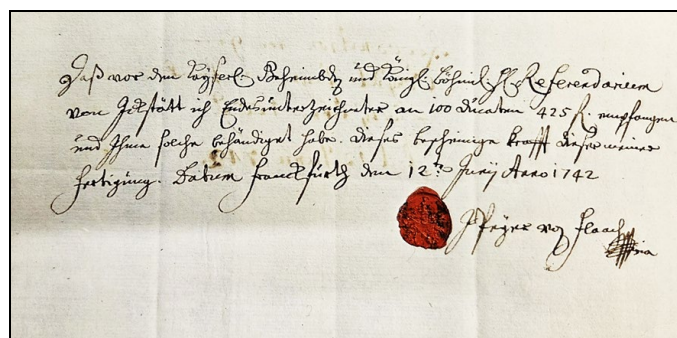 Daß vor dem Kayserl. Geheimbden und Königl. Böhmi. H. Referendarium
von Ickstätt ich Endesunterzeichneter an 100 Ducaten 425 fl. empfangen
und Ihme solche behändiget habe. dieses bescheinige krafft dieser meiner
fertigung. Datum franckfurth den 12ten Junij Anno 1742
von Flach